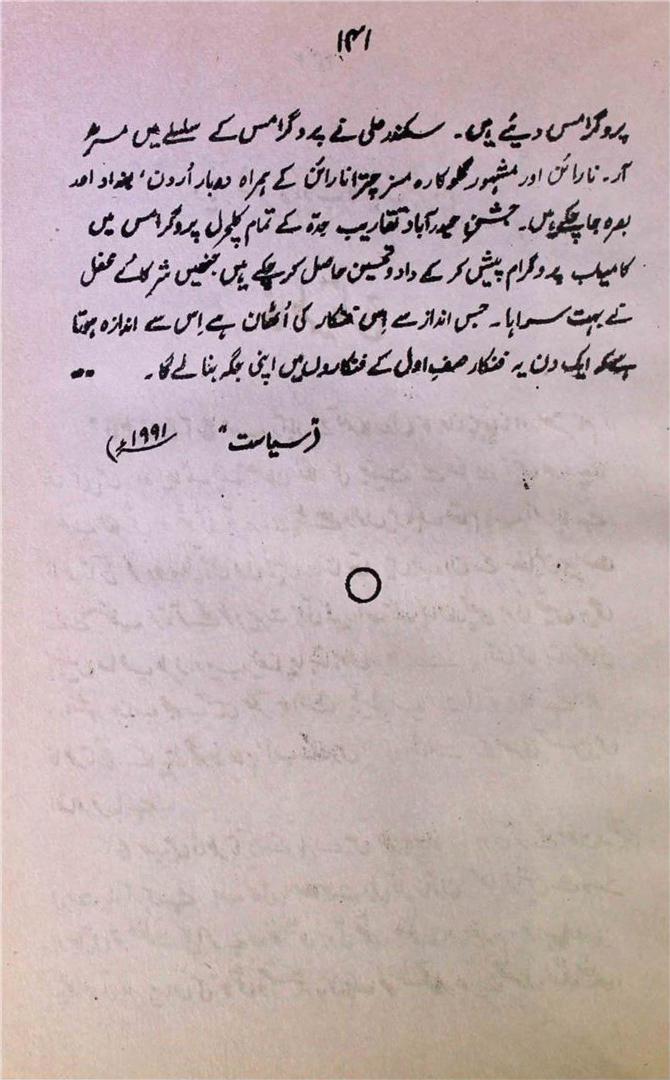 ۱۴۱
پروگرامس دیئے ہیں۔ سکندر علی نے پروگرامس کے سلسلے میں مسٹر
آر۔ نارائن اور مشہور گلوکارہ مسز چترا نارائن کے ہمراہ دوبار اُردن، بغداد اور
بصرہ جاچکے ہیں۔ جشنِ حیدرآباد تقاریب جدّہ کے تمام کلچرل پروگرامس میں
کامیاب پروگرام پیش کر کے داد و تحسین حاصل کر چکے ہیں جنھیں شرکائے محفل
نے بہت سراہا۔ جس انداز سے اِس فنکار کی اُٹھان ہے اِس سے اندازہ ہوتا
ہے کہ ایک دن یہ فنکار صفِ اول کے فنکاروں میں اپنی جگہ بنالے گا۔ ••
(سیاست" ۱۹۹۱ء)